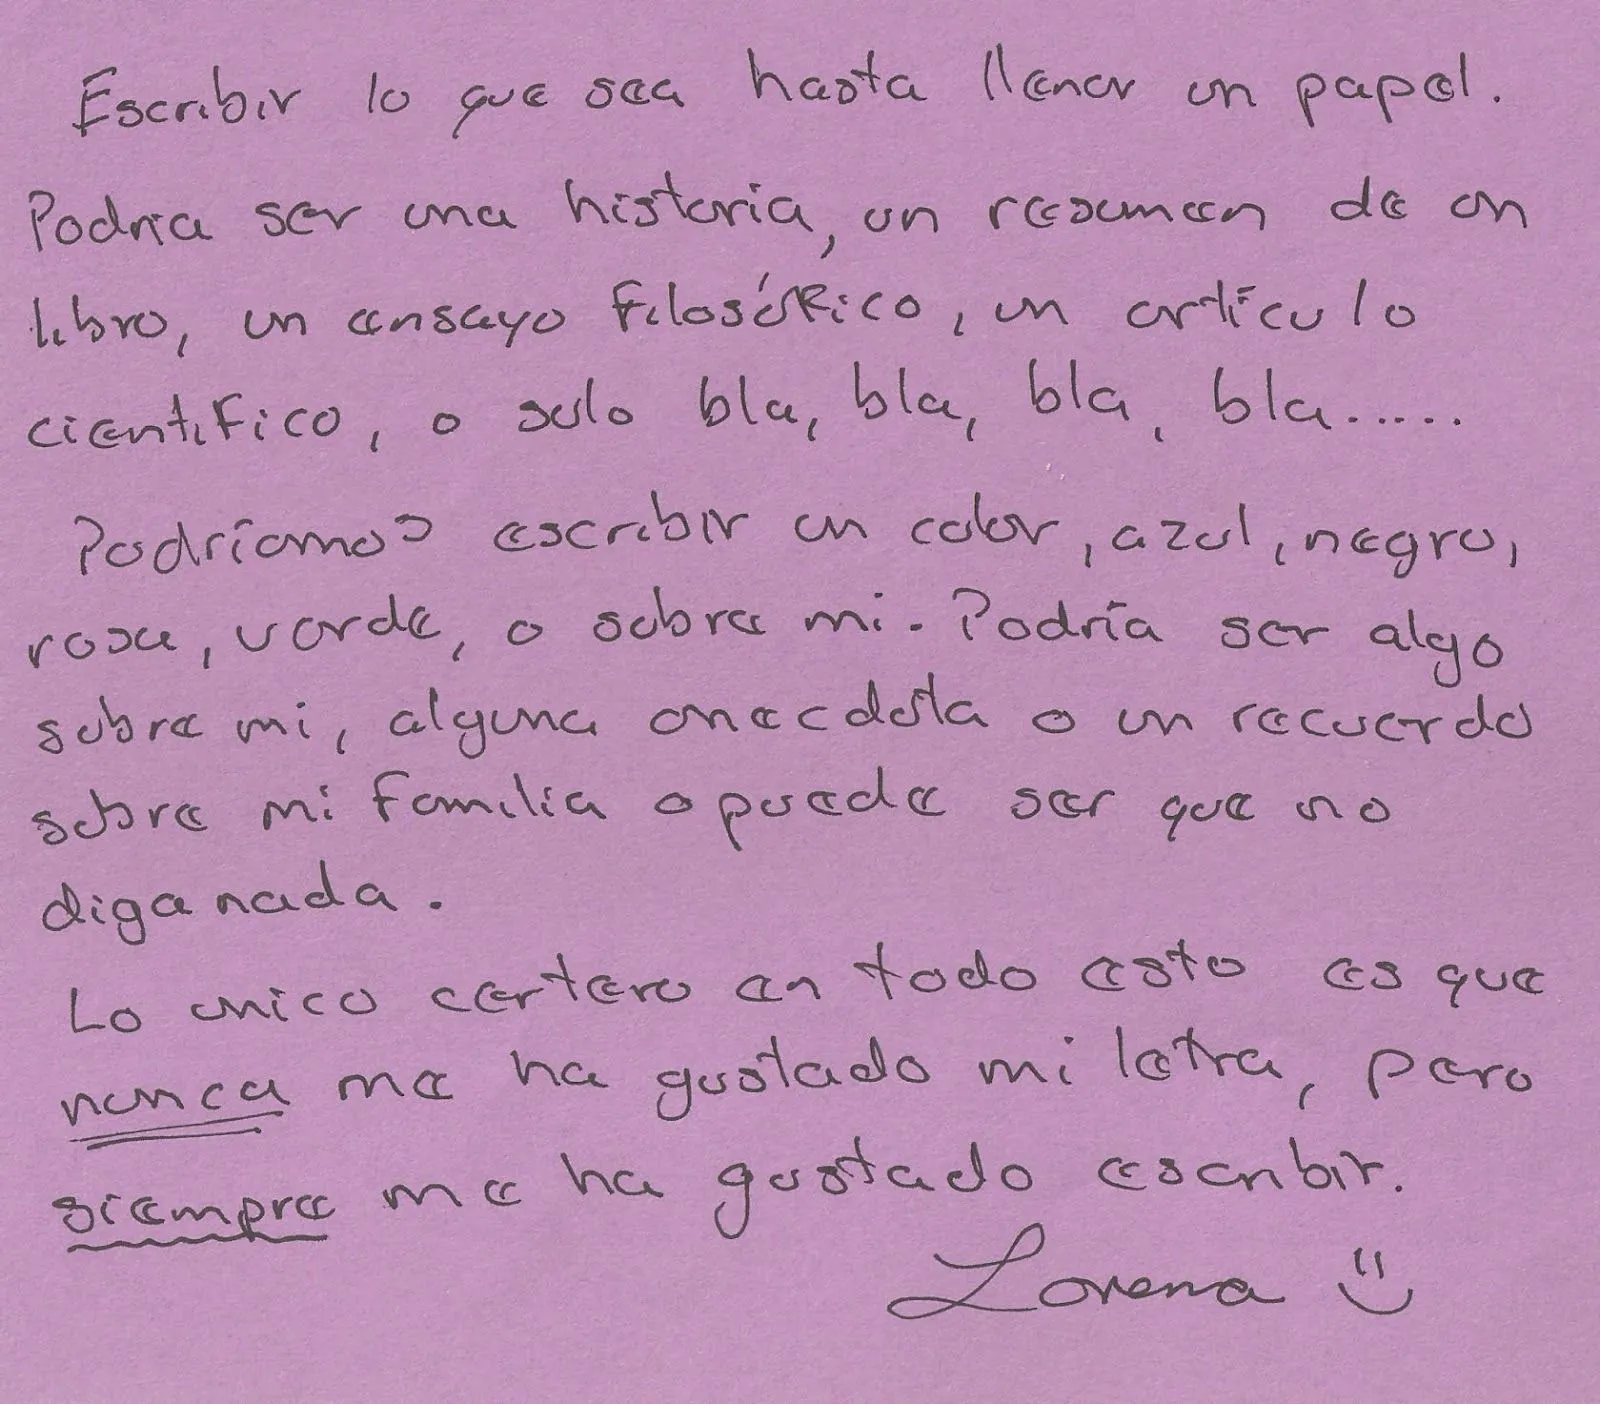 Escribir lo que sea hasta llenar un papel.
Podria ser una historia, un resumen de un
libro, un ensayo filosófico, un artículo
cientifico, o solo bla, bla, bla, bla......
Podríamos escribir un color, azul, negro,
rosa, verde, o sobre mi. Podría ser algo
sobre mi, alguna anecdota o un recuerdo
sobre mi familia o puede ser que no
diga nada.
Lo unico certero en todo esto es que
nunca me ha gustado mi letra, pero
siempre me ha gustado escribir.
Lorena